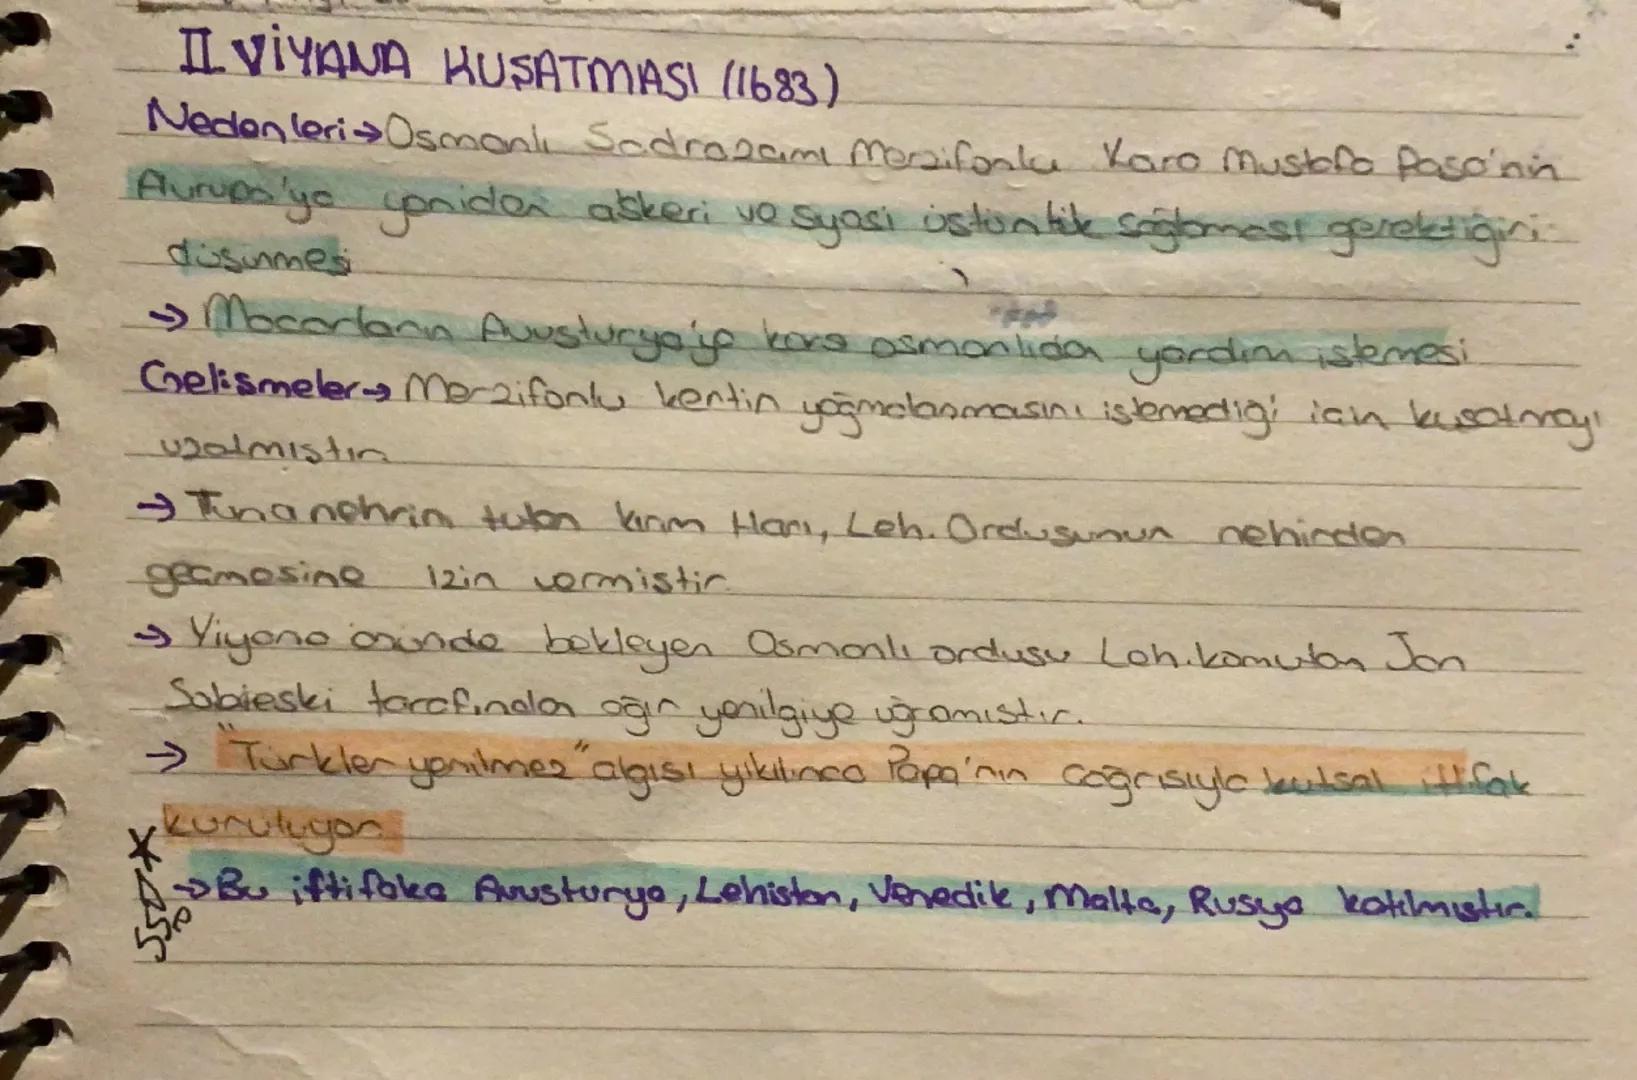 II. VİYANA KUŞATMASI (1683)
Nedenleri→Osmanlı Sadrazamı Merzifonlu Kara Mustafa Paşa'nın
Avrupa'ya yeniden askeri ve syasi üstünlük sağlaması gerektiğini
düşünmesi
→ Macarların Avusturya'ya karşı osmanlıdan yardım istemesi
Gelişmeler→ Merzifonlu kentin yağmalanmasını istemediği için kuşatmayı
uzatmıştır
→ Tuna nehrin tutan Kırım Hanı, Leh. Ordusunun nehirden
geçmesine izin vermiştir.
→ Viyana önünde bekleyen Osmanlı ordusu Leh.komutan Jan
Sobieski tarafından ağır yenilgiye uğramıştır.
→ "Türkler yenilmez" algısı yıkılınca Papa'nın çağrısıyla kutsal ittifak
kuruluyor.
→Bu iftifaka Avusturya, Lehistan, Venedik, Malta, Rusya katılmıştır.